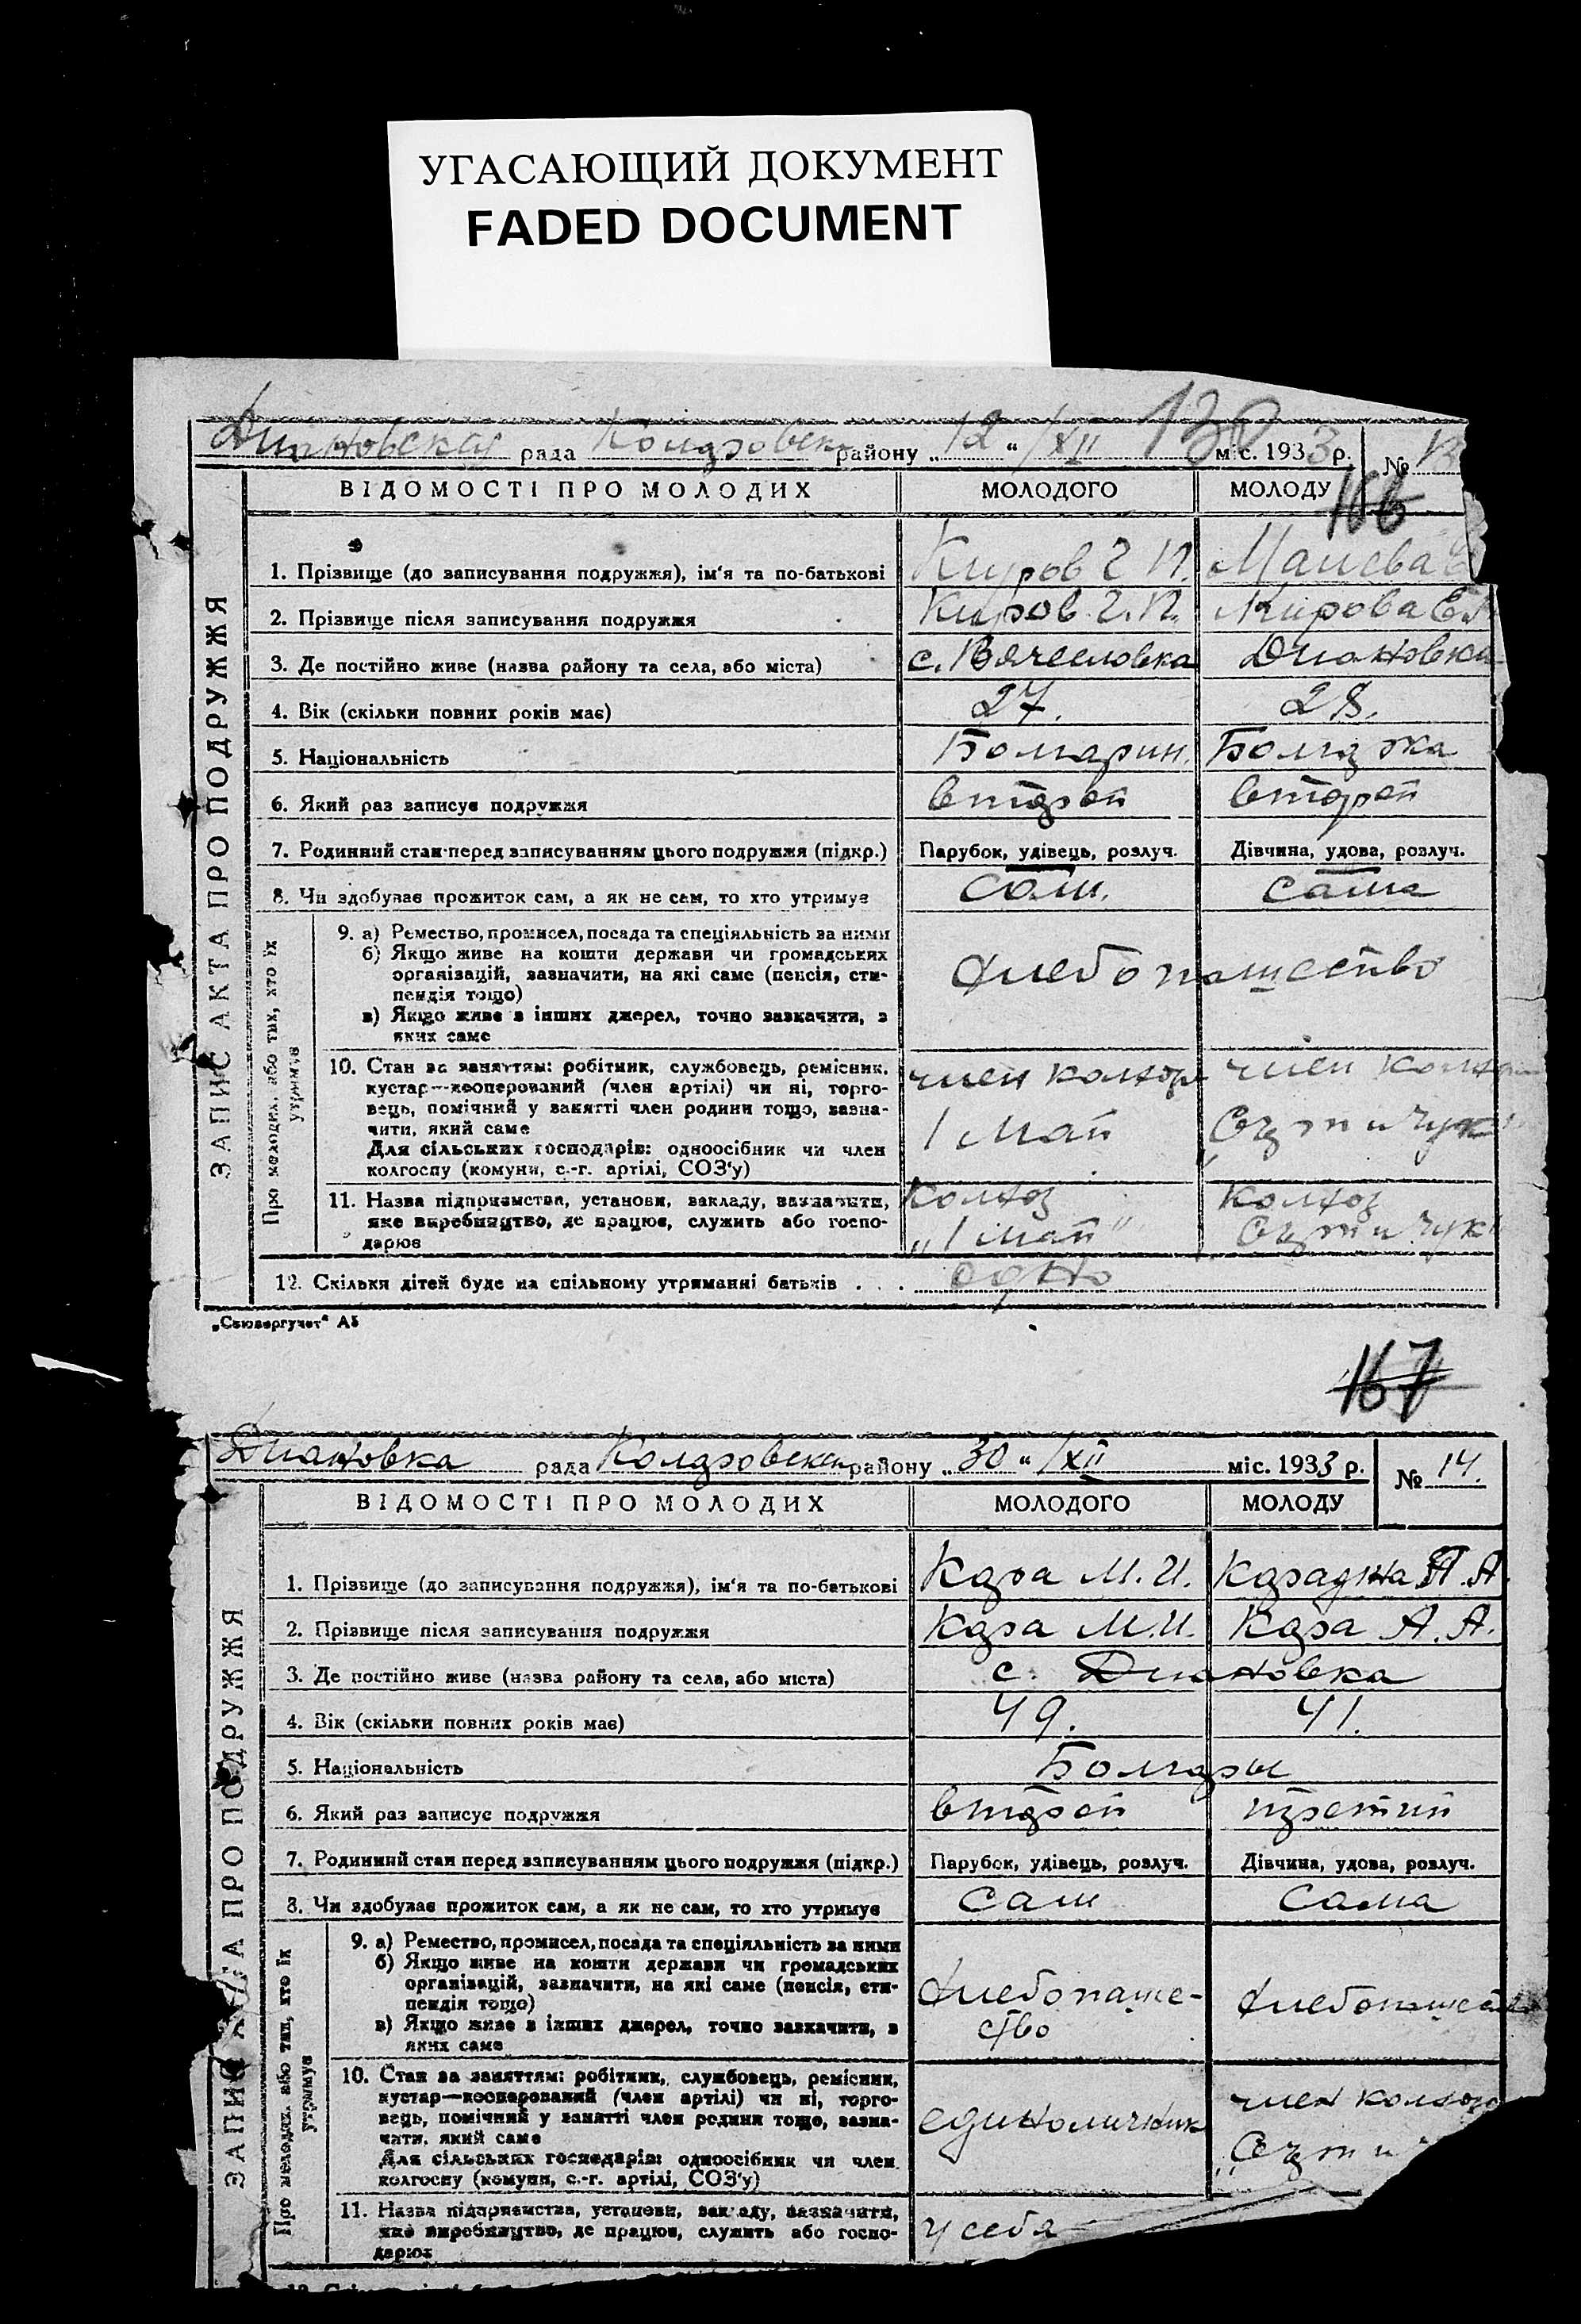 УГАСАЮЩИЙ ДОКУМЕНТ
FADED DOCUMENT
130
Диановская рада Коларовск району „12“ /XII міс. 1933 р. № 13
ВІДОМОСТІ ПРО МОЛОДИХ МОЛОДОГО МОЛОДУ
166
ЗАПИС АКТА ПРО ПОДРУЖЖЯ
1. Прізвище (до записування подружжя), ім'я та по-батькові Киров Г П.
2. Прізвище після записування подружжя Киров Г. П. Кирова
3. Де постійно живе (назва району та села, або міста) с. Вячеславка Диановка
4. Вік (скільки повних років має) 27. 28.
5. Національність Болгарин. Болгарка
6. Який раз записує подружжя второй второй
7. Родинний стан перед записуванням цього подружжя (підкр.) Парубок, удівець, розлуч. Дівчина, удова, розлуч.
8. Чи здобуває прожиток сам, а як не сам, то хто утримує сам. сама
Про молодих, або тих, хто їх утримує
9. а) Ремество, промисел, посада та спеціяльність за ними
б) Якщо живе на кошти держави чи громадських
організацій, зазначити, на які саме (пенсія, сти-
пендія тощо)
хлебопашество
в) Якщо живе з інших джерел, точно зазначити, з
яких саме
10. Стан за заняттям: робітник, службовець, ремісник,
кустар—кооперований (член артілі) чи ні, торго-
вець, помічний у занятті член родини тощо, зазна-
чити, який саме
Для сільських господарів: одноосібник чи член
колгоспу (комуни, с.-г. артілі, СОЗ'у)
член колхоз
1 май
член колхоз
11. Назва підприємства, установи, закладу, зазначити,
яке виробництво, де працює, служить або госпо-
дарює
колхоз
„1 май“
колхоз
12. Скільки дітей буде на спільному утриманні батьків . . . одно
„Союзоргучет“ А5
167
Диановка рада Коларовски району „30“ /XII міс. 1933 р. № 14.
ВІДОМОСТІ ПРО МОЛОДИХ МОЛОДОГО МОЛОДУ
ЗАПИС АКТА ПРО ПОДРУЖЖЯ
1. Прізвище (до записування подружжя), ім'я та по-батькові Кара М. И.
2. Прізвище після записування подружжя Кара М. И. Кара А. А.
3. Де постійно живе (назва району та села, або міста) с. Диановка
4. Вік (скільки повних років має) 49. 41.
5. Національність Болгары
6. Який раз записує подружжя второй третий
7. Родинний стан перед записуванням цього подружжя (підкр.) Парубок, удівець, розлуч. Дівчина, удова, розлуч.
8. Чи здобуває прожиток сам, а як не сам, то хто утримує сам сама
Про молодих, або тих, хто їх утримує
9. а) Ремество, промисел, посада та спеціяльність за ними
б) Якщо живе на кошти держави чи громадських
організацій, зазначити, на які саме (пенсія, сти-
пендія тощо)
в) Якщо живе з інших джерел, точно зазначити, з
яких саме
хлебопаше-
ство
хлебопашество
10. Стан за заняттям: робітник, службовець, ремісник,
кустар—кооперований (член артілі) чи ні, торго-
вець, помічний у занятті член родини тощо, зазна-
чити, який саме
Для сільських господарів: одноосібник чи член
колгоспу (комуни, с.-г. артілі, СОЗ'у)
единоличник
член колхоз
11. Назва підприємства, установи, закладу, зазначити,
яке виробництво, де працює, служить або госпо-
дарює
у себя